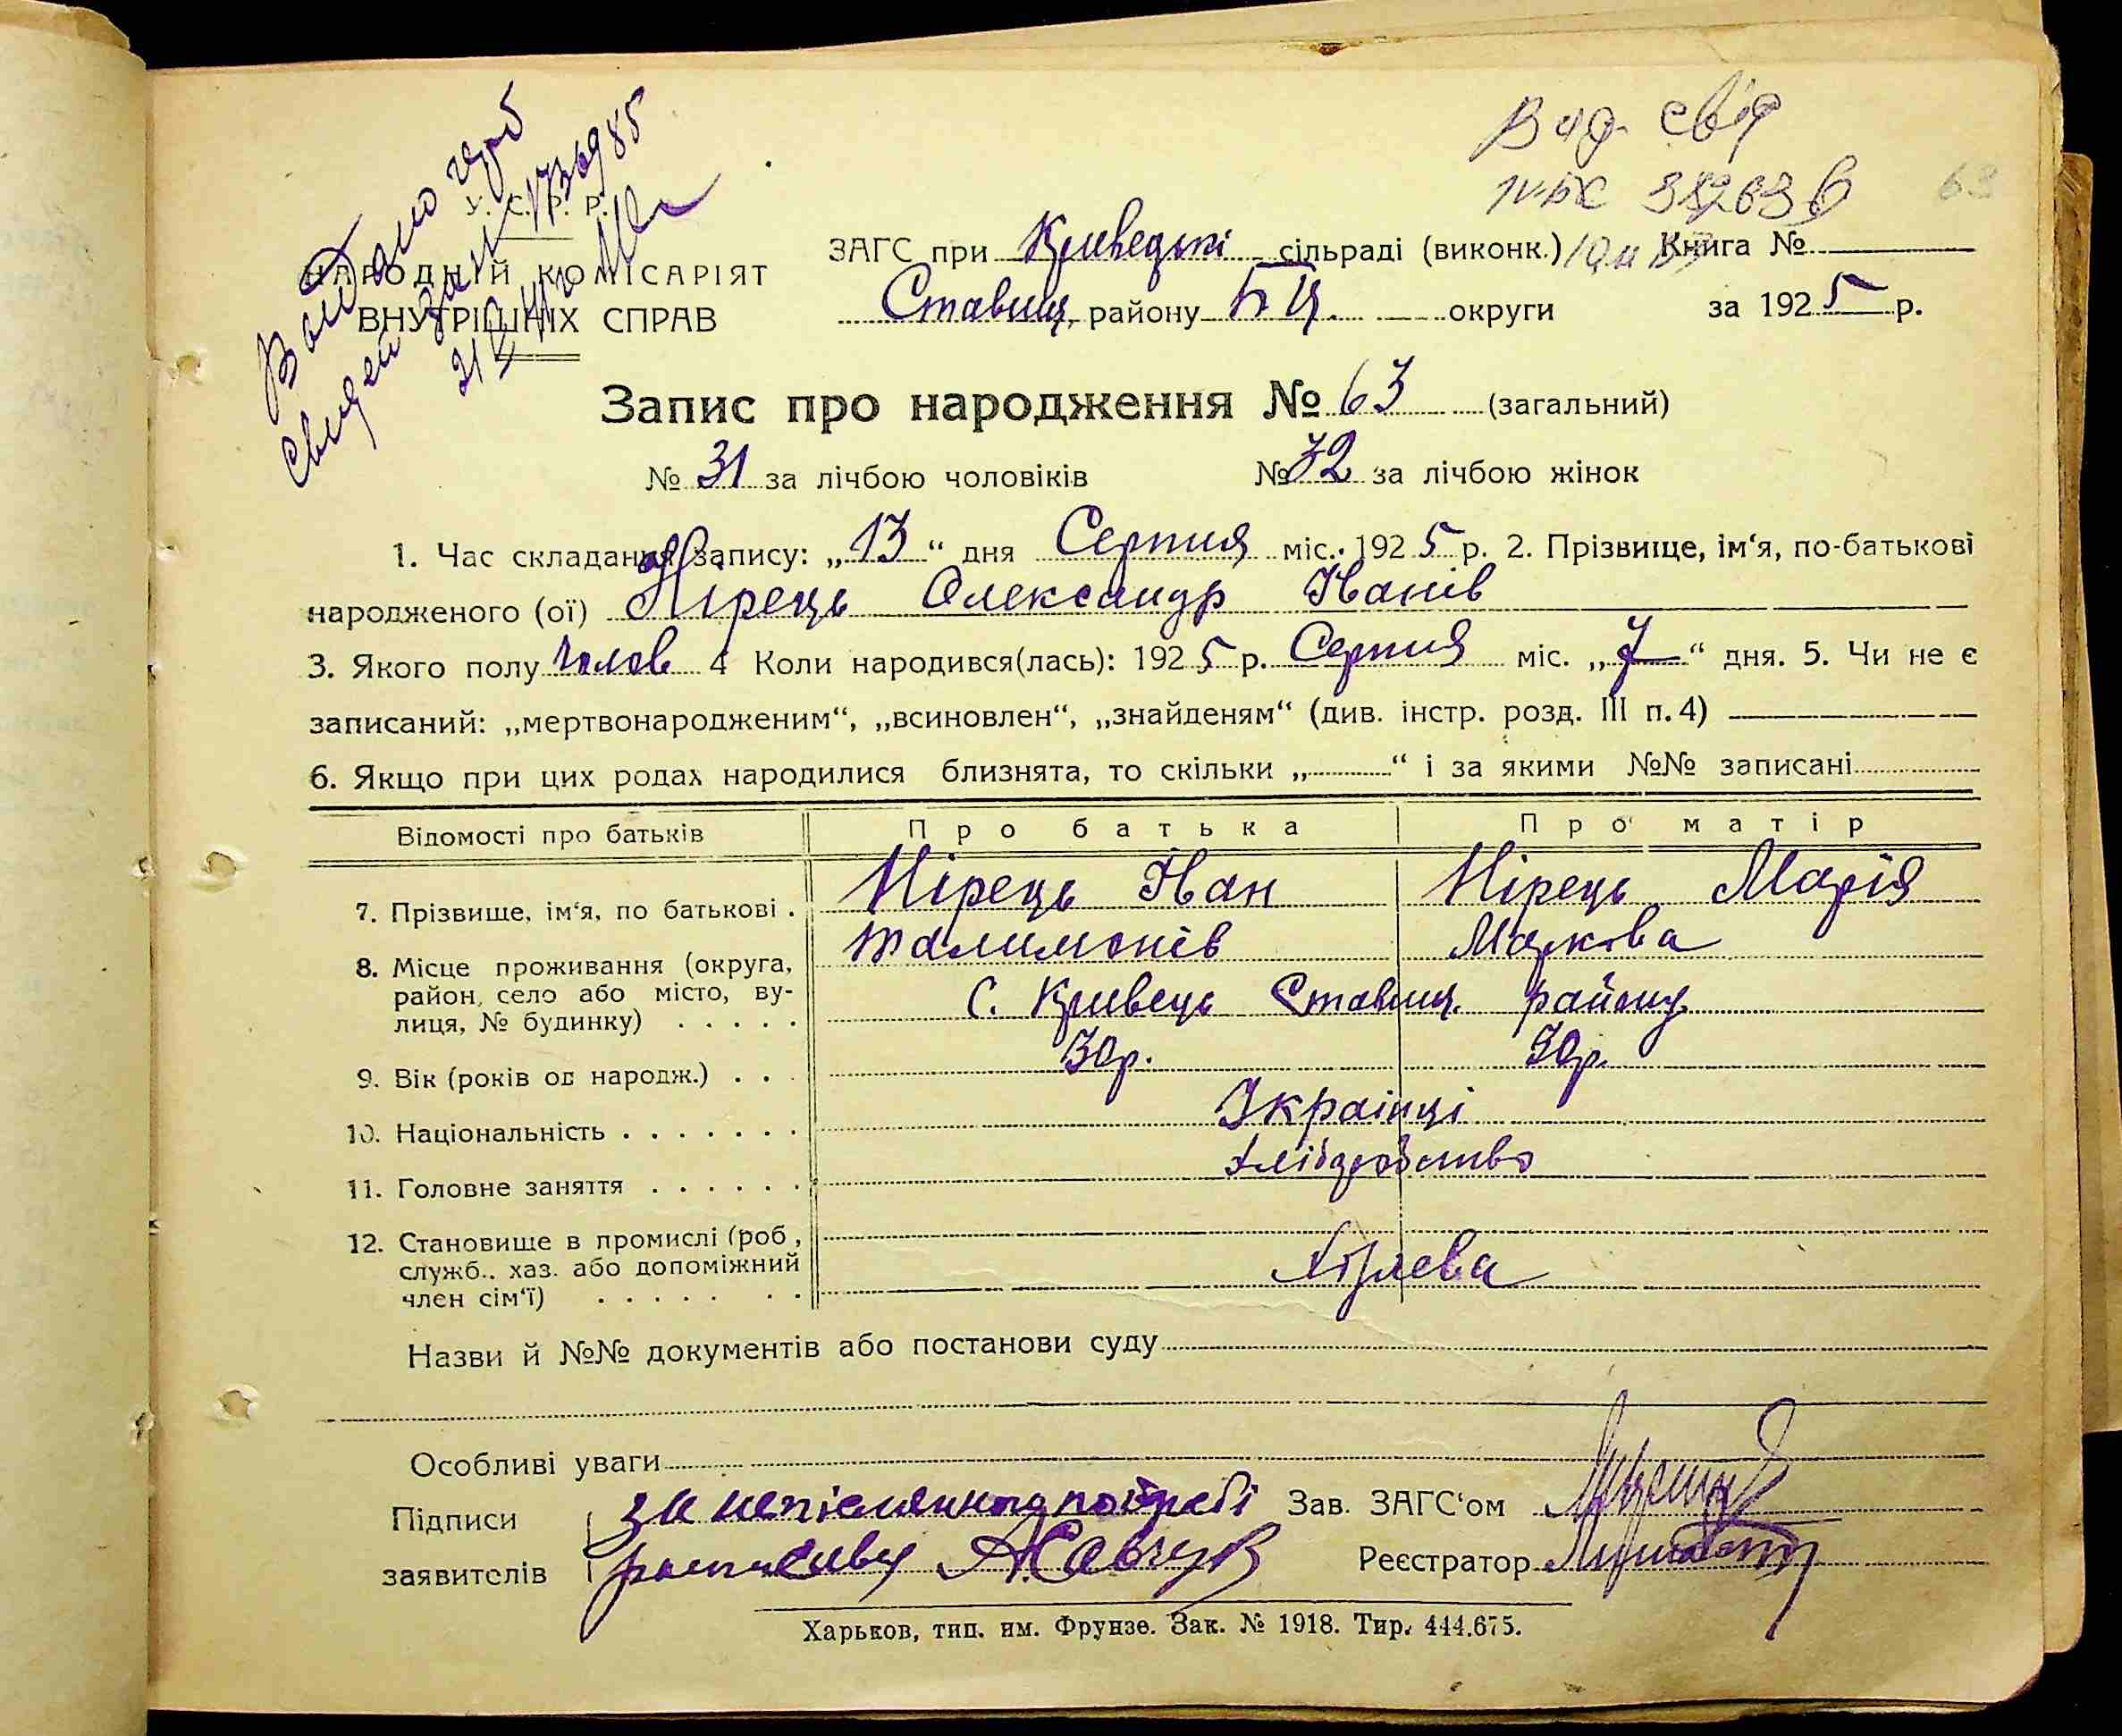 Вид. свід
IV-БС 382636
63
Видано
У. С. Р. Р.
НАРОДНІЙ КОМІСАРІЯТ
ВНУТРІШНІХ СПРАВ
ЗАГС при Кривецькі сільраді (виконк.) Книга №
Ставищ. району БЦ. округи за 1925 р.
Запис про народження № 63 (загальний)
№ 31 за лічбою чоловіків № 32 за лічбою жінок
1. Час складання запису: „13“ дня Серпня міс. 1925 р. 2. Прізвище, ім‘я, по-батькові
народженого (ої) Нірець Олександр Іванів
3. Якого полу Чолов 4 Коли народився(лась): 1925 р. Серпня міс. „7“ дня. 5. Чи не є
записаний: „мертвонародженим“, „всиновлен“, „знайденям“ (див. інстр. розд. III п. 4)
6. Якщо при цих родах народилися близнята, то скільки „ “ і за якими №№ записані
Відомості про батьків Про батька Про матір
7. Прізвище, ім‘я, по батькові . Нірець Іван Нірець Марія
Талимонів Маркова
8. Місце проживання (округа,
район, село або місто, ву-
лиця, № будинку) . . . . . с. Кривець Ставищ. району
9. Вік (років од народж.) . . . 30р. 30р.
10. Національність . . . . . . . Українці
11. Головне заняття . . . . . . Хліборобство
12. Становище в промислі (роб.,
служб., хаз. або допоміжний
член сім‘ї) . . . . . . .
Назви й №№ документів або постанови суду
Особливі уваги
Підписи за Зав. ЗАГС‘ом
заявителів А Савчук Реєстратор
Харьков, тип. им. Фрунзе. Зак. № 1918. Тир. 444.675.